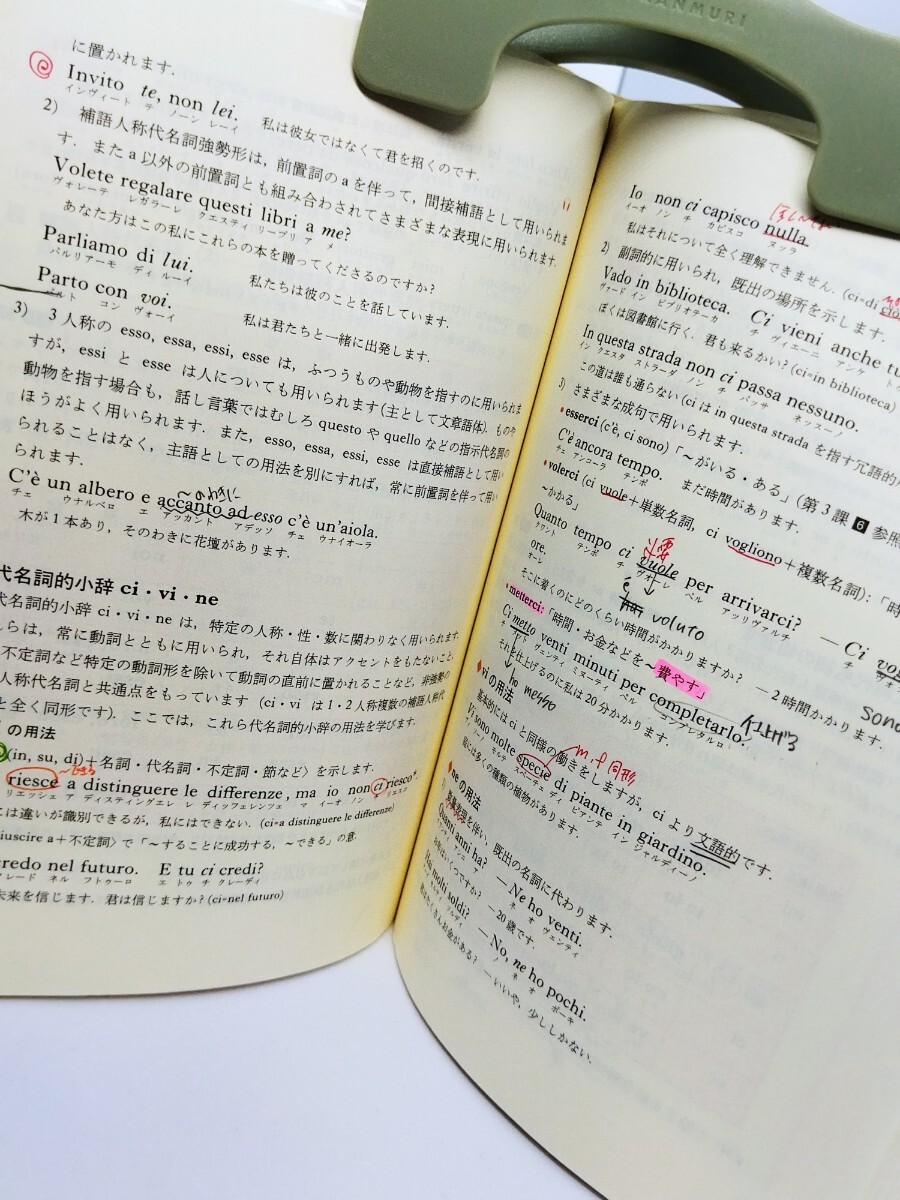 ANMURI
に置かれます.
Invito te, non lei.　私は彼女ではなくて君を招くのです.
インヴィート テ ノーン レーイ
2)　補語人称代名詞強勢形は, 前置詞の a を伴って, 間接補語として用いられま
す. また a 以外の前置詞とも組み合わされてさまざまな表現に用いられます.
Volete regalare questi libri a me?
ヴォレーテ レガラーレ クエスティ リーブリ ア メ
あなた方はこの私にこれらの本を贈ってくださるのですか?
Parliamo di lui.　私たちは彼のことを話しています.
パルリアーモ ディ ルーイ
Parto con voi.　私は君たちと一緒に出発します.
パルト コン ヴォーイ
3)　3 人称の esso, essa, essi, esse は, ふつうものや動物を指すのに用いられま
すが, essi と esse は人についても用いられます(主として文章語体). ものや
動物を指す場合も, 話し言葉ではむしろ questo や quello などの指示代名詞の
ほうがよく用いられます. また, esso, essa, essi, esse は直接補語として用い
られることはなく, 主語としての用法を別にすれば, 常に前置詞を伴って用い
られます.
C'è un albero e accanto ad esso c'è un'aiola.
チェ ウナルベロ エ アッカント アデッソ チェ ウナイオーラ
木が 1 本あり, そのわきに花壇があります.
代名詞的小辞 ci・vi・ne
代名詞的小辞 ci・vi・ne は, 特定の人称・性・数に関わりなく用いられます.
らは, 常に動詞とともに用いられ, それ自体はアクセントをもたないこと,
不定詞など特定の動詞形を除いて動詞の直前に置かれることなど, 非強勢の
人称代名詞と共通点をもっています (ci・vi は 1・2 人称複数の補語人称代
と全く同形です). ここでは, これら代名詞的小辞の用法を学びます.
の用法
(in, su, di)+名詞・代名詞・不定詞・節など〉を示します.
riesce a distinguere le differenze, ma io non ci riesco*.
リエッシェ ア ディスティングエレ レ ディッフェレンツェ マ イーオ ノン チ リエスコ
は違いが識別できるが, 私にはできない. (ci=a distinguere le differenze)
iuscire a+不定詞〉で「～することに成功する, ～できる」の意.
redo nel futuro.　E tu ci credi?
クレード ネル フトゥーロ エ トゥ チ クレーディ
未来を信じます. 君は信じますか? (ci=nel futuro)
Io non ci capisco nulla.
イーオ ノン チ カピスコ ヌッラ
私はそれについて全く理解できません. (ci=di
2)　副詞的に用いられ, 既出の場所を示します.
Vado in biblioteca.　Ci vieni anche tu
ヴァード イン ビブリオテーカ チ ヴィエーニ アンケ
ぼくは図書館に行く. 君も来るかい? (ci=in biblioteca)
In questa strada non ci passa nessuno.
イン クエスタ ストラーダ ノン チ パッサ ネッスーノ
この道は誰も通らない (ci は in questa strada を指す冗語的
3)　さまざまな成句で用いられます.
esserci (c'è, ci sono)「～がいる・ある」(第 3 課 6 参照
C'è ancora tempo.　まだ時間があります.
チェ アンコーラ テンポ
volerci (ci vuole+単数名詞, ci vogliono+複数名詞):「時
～かかる」
Quanto tempo ci vuole per arrivarci? — Ci vo
クワント テンポ チ ヴオーレ ペル アッリヴァルチ
ore.
オーレ
è voluto
そこに着くのにどのくらい時間がかかりますか? — 2 時間かかります.
metterci:「時間・お金などを～費やす」
Ci metto venti minuti per completarlo.
チ メット ヴェンティ ミヌーティ ペル コンプレタルロ
仕上げる
それを仕上げるのに私は 20 分かかります.
ho messo
vi の用法
基本的には ci と同様の働きをしますが, ci より文語的です.
m・f 同形
Vi sono molte specie di piante in giardino.
庭には多くの種類の植物があります.
ne の用法
数量表現を伴い, 既出の名詞に代わります.
Quanti anni ha?　— Ne ho venti.
ネ オ ヴェンティ
おいくつですか? — 20 歳です.
Hai molti soldi?　— No, ne ho pochi.
ノ ネ オ ポーキ
君はたくさんお金がある? — いいや, 少ししかない.